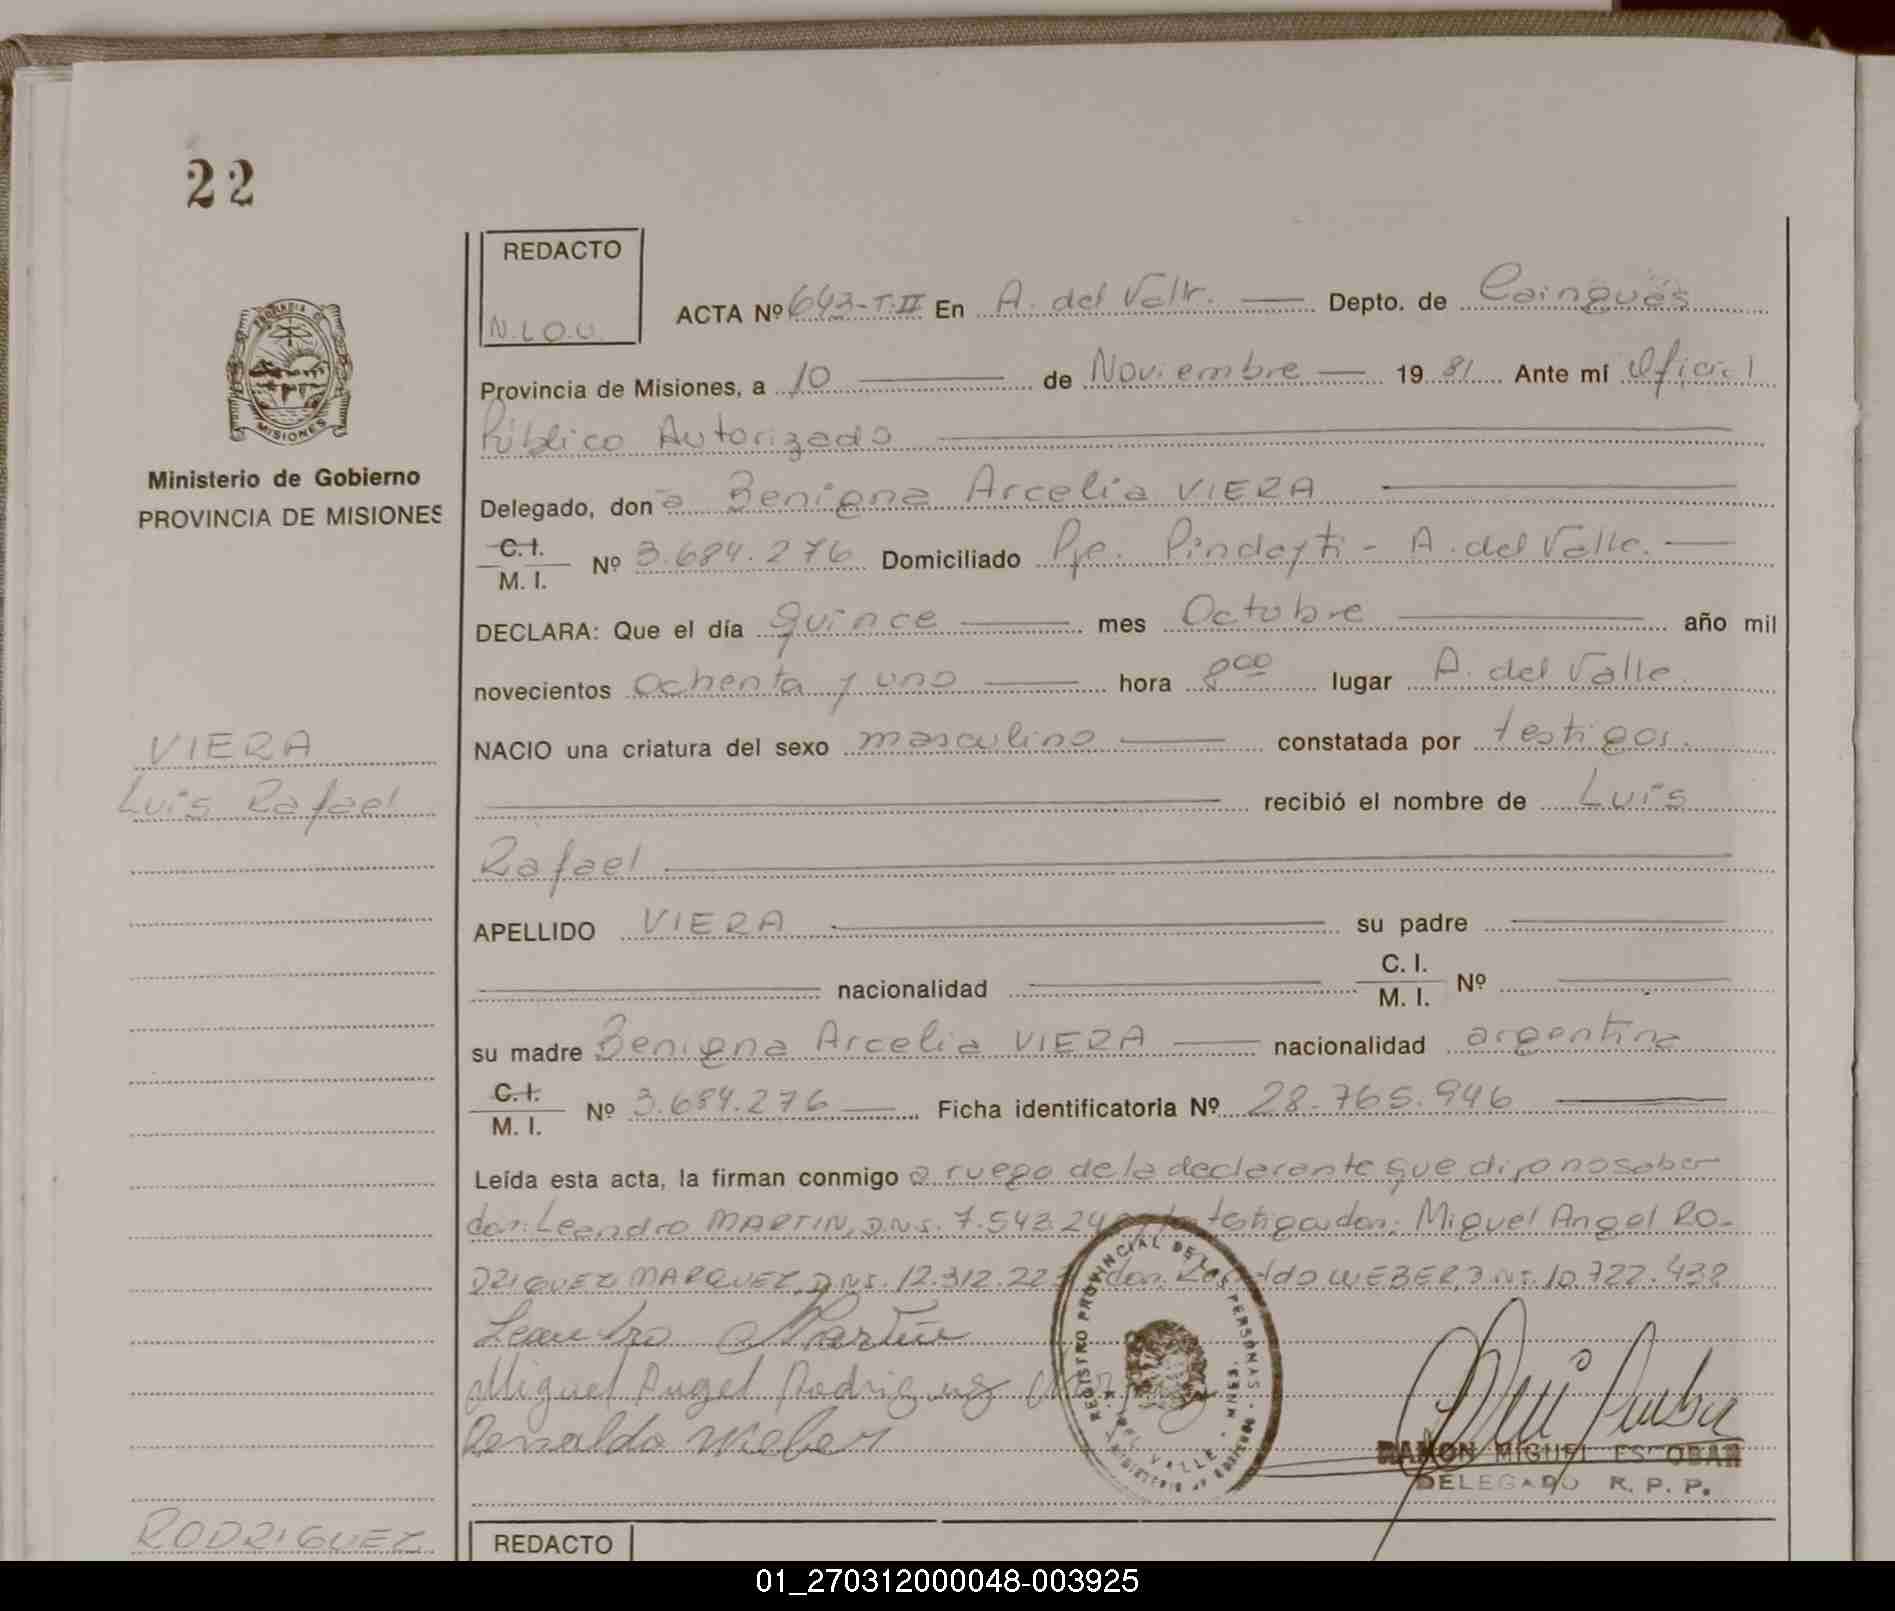 22
REDACTO
N.L.O.U.
ACTA Nº 643-T.II En A. del Valle. Depto. de Cainguás
PROVINCIA DE
MISIONES
Provincia de Misiones, a 10 de Noviembre 19 81 Ante mí Oficial
Público Autorizado
Ministerio de Gobierno
PROVINCIA DE MISIONES
Delegado, don a Benigna Arcelia VIERA
C.I.
M. I. Nº 3.684.276 Domiciliado Pje. Pindayti - A. del Valle.
DECLARA: Que el día quince mes Octubre año mil
novecientos ochenta y uno hora 8 00 lugar A. del Valle.
VIERA
Luis Rafael
NACIO una criatura del sexo masculino constatada por testigos.
recibió el nombre de Luis
Rafael
APELLIDO VIERA su padre
nacionalidad C. I.
M. I. Nº
su madre Benigna Arcelia VIERA nacionalidad argentina
C.I.
M. I. Nº 3.684.276 Ficha identificatoria Nº 28.765.946
Leída esta acta, la firman conmigo a ruego de la declarante que dijo no saber
don: Leandro MARTIN, D.N.I. 7.543.24 testigos don: Miguel Angel RO-
DRIGUEZ MARQUEZ, D.N.I. 12.312.22 don: WEBER, D.N.I. 10.722.432
Leandro Martin
Miguel Angel Rodriguez
Renaldo Weber
REGISTRO PROVINCIAL DE LAS PERSONAS
VALLE - MNES.
RAMON MIGUEL ESCOBAR
DELEGADO R. P. P.
RODRIGUEZ
REDACTO
01_270312000048-003925